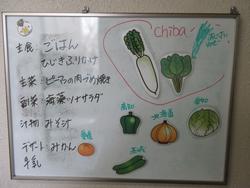 主食 ごはん
ひじきふりかけ
主菜 ピーマンの肉づめ焼き
副菜 海藻ツナサラダ
汁物 みそ汁
デザート みかん
牛乳
chiba
高知
北海道
愛知
愛媛
茨城